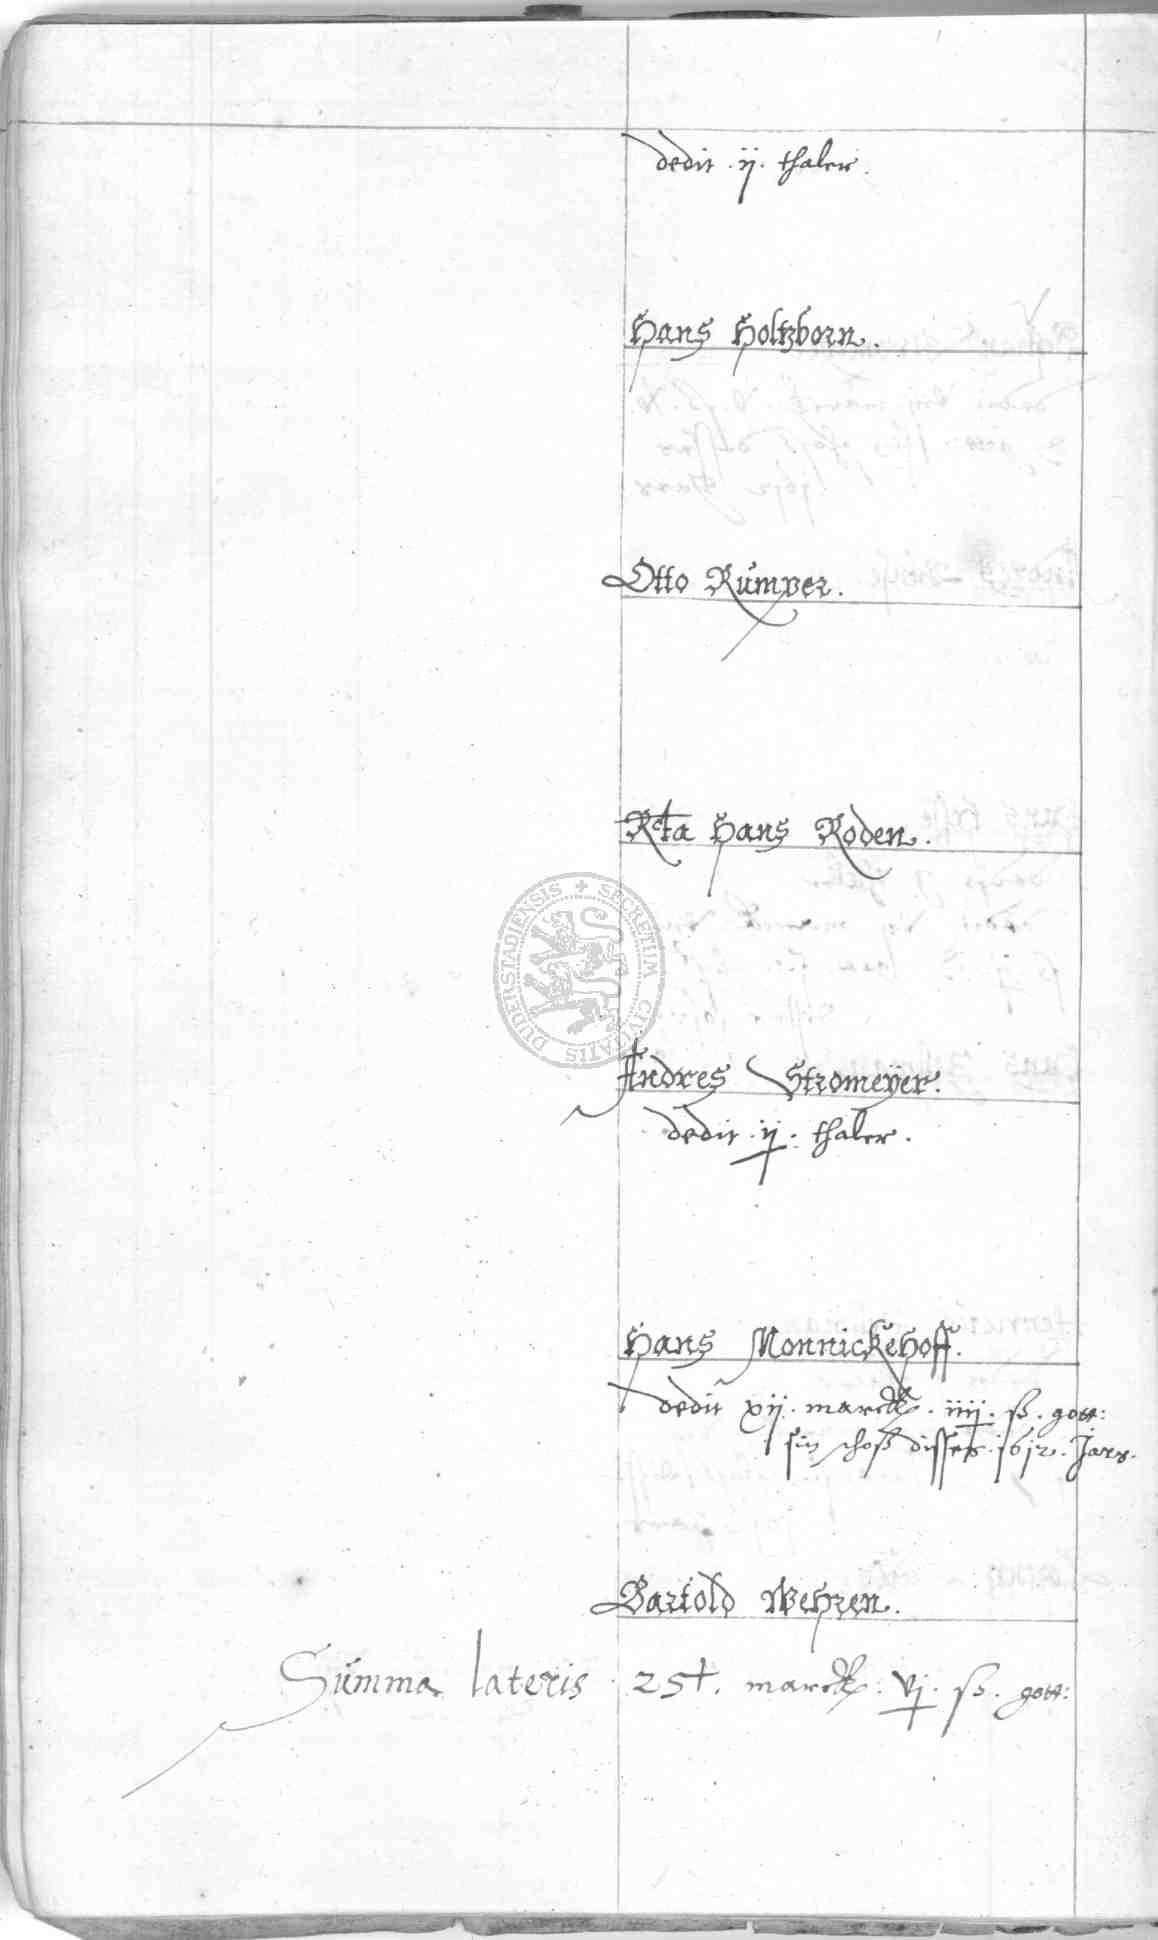 dedit .ij. thaler.
Hans Holtzborn.
Otto Rümper.
Rcta Hans Roden.
SECRETUM CIVITATIS DUDERSTADIENSIS
Andres Stromeÿer.
dedit .ij. thaler.
Hans Monnickehoff.
dedit xij. marck. iiij. ß. gott:
sin schoß disses 1612. Jars.
Bartold Wehren.
Summa lateris 25½. marck. vj. ß. gott: